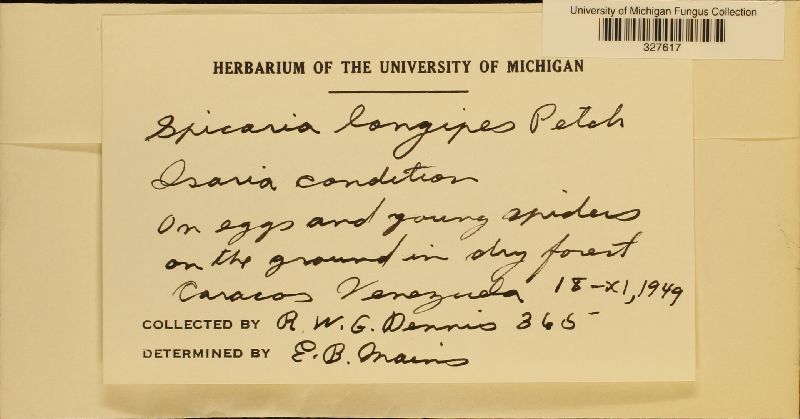 University of Michigan Fungus Collection
327617
HERBARIUM OF THE UNIVERSITY OF MICHIGAN
Spicaria longipes Petch
Isaria condition
On eggs and young spiders
on the ground in dry forest
Caracas Venezuela 18-XI, 1949
COLLECTED BY R. W. G. Dennis 365
DETERMINED BY E. B. Mains